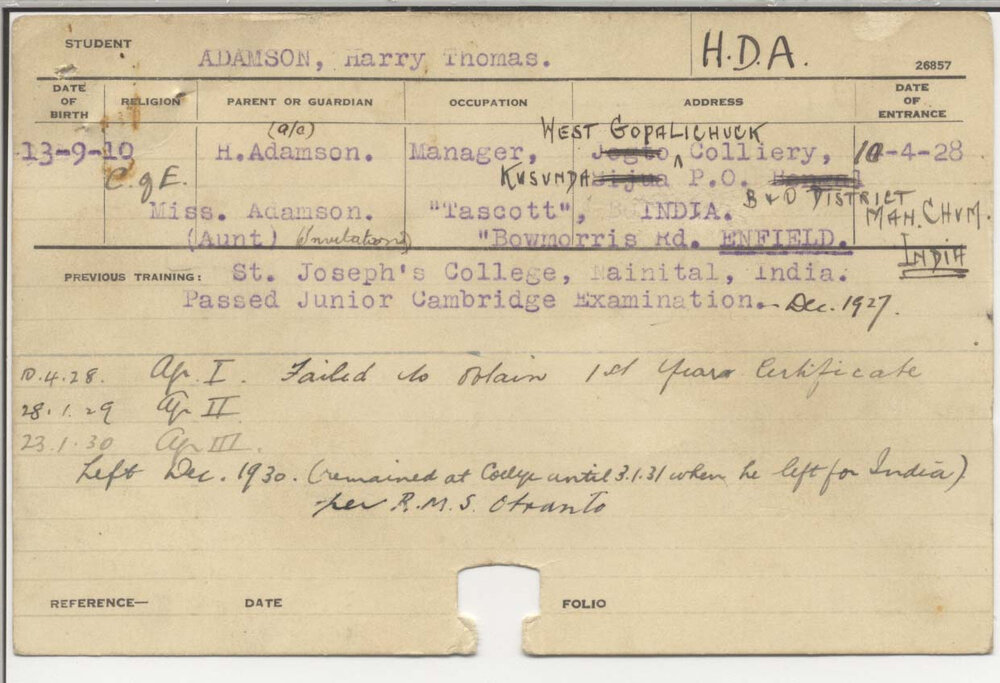 STUDENT ADAMSON, Harry Thomas. H.D.A. 26857
DATE OF BIRTH RELIGION PARENT OR GUARDIAN OCCUPATION ADDRESS DATE OF ENTRANCE
(a/c) WEST GOPALICHUCK
13-9-10 H.Adamson. Manager, Jogto Colliery, 10-4-28
C. of E. KUSUNDA Sijua P.O. B & O DISTRICT
Miss. Adamson. "Tascott", INDIA. MAN.CHUM.
(Aunt) (Invitations) "Bowmorris Rd. ENFIELD. INDIA
PREVIOUS TRAINING: St. Joseph's College, Nainital, India.
Passed Junior Cambridge Examination. Dec. 1927.
10.4.28. Ag. I. Failed to obtain 1st Years Certificate
28.1.29 Ag. II
23.1.30 Ag. III.
Left Dec. 1930. (remained at College until 3.1.31 when he left for India)
per R.M.S. Otranto
REFERENCE— DATE FOLIO